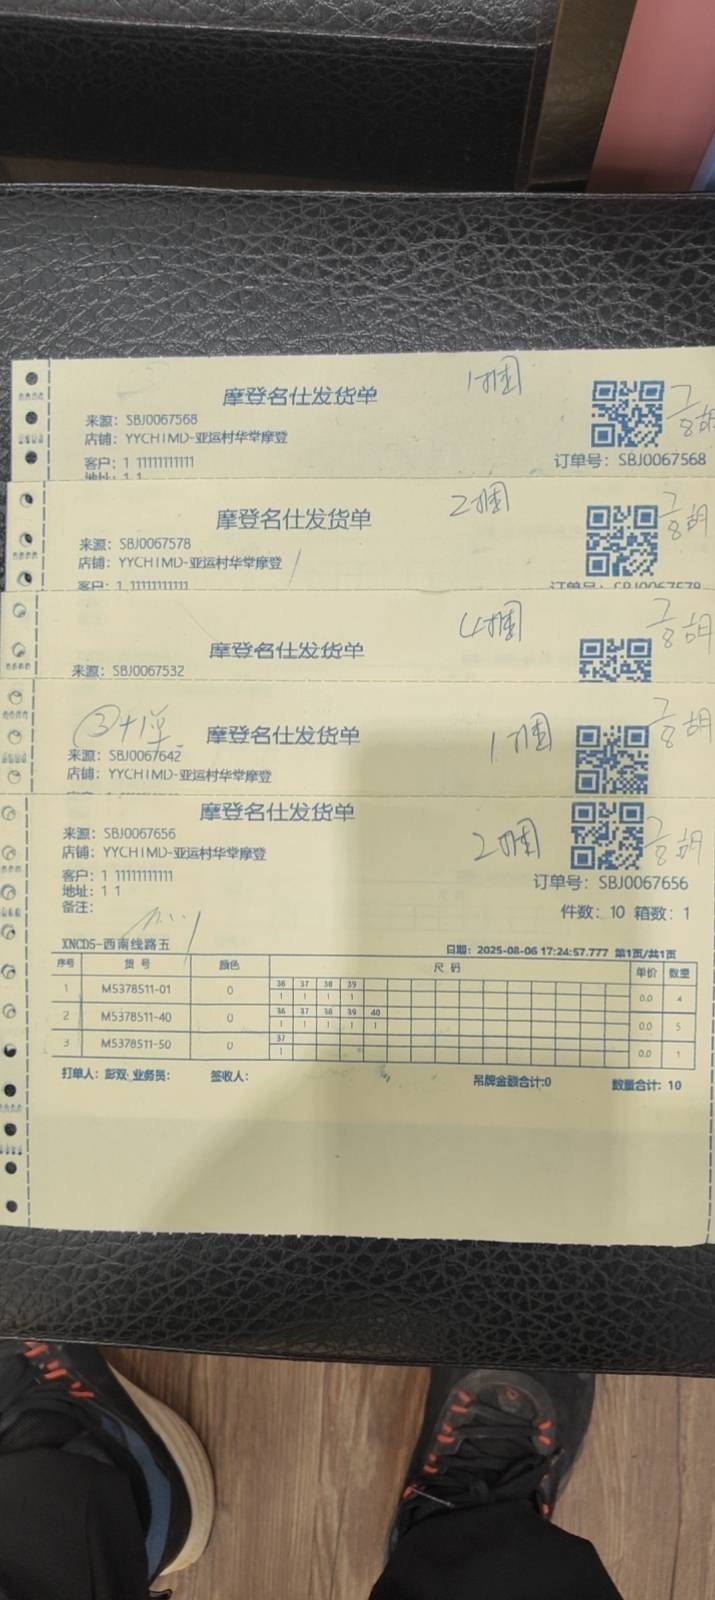 摩登名仕发货单 1捆
7/8胡
来源: SBJ0067568
店铺: YYCHIMD-亚运村华堂摩登
客户: 1 11111111111
订单号: SBJ0067568
地址: 1 1
摩登名仕发货单 2捆
7/8胡
来源: SBJ0067578
店铺: YYCHIMD-亚运村华堂摩登
客户: 1 11111111111
订单号: SBJ0067578
摩登名仕发货单 4捆
7/8胡
来源: SBJ0067532
③+1单
摩登名仕发货单 1捆
7/8胡
来源: SBJ0067642
店铺: YYCHIMD-亚运村华堂摩登
摩登名仕发货单 2捆
7/8胡
来源: SBJ0067656
店铺: YYCHIMD-亚运村华堂摩登
客户: 1 11111111111
订单号: SBJ0067656
地址: 1 1
备注:
件数: 10 箱数: 1
XNCD5-西南线路五
日期: 2025-08-06 17:24:57.777 第1页/共1页
序号 货号 颜色 尺码 单价 数量
36 37 38 39
1 M5378511-01 0 1 1 1 1 0.0 4
36 37 38 39 40
2 M5378511-40 0 1 1 1 1 1 0.0 5
37
3 M5378511-50 0 1 0.0 1
打单人: 彭双 业务员: 签收人: 吊牌金额合计:0 数量合计: 10